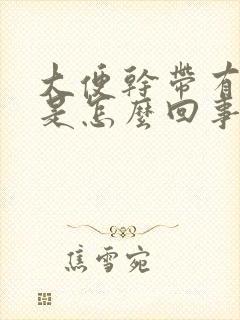 大便幹帶有
是怎麼回事
焦雪宛